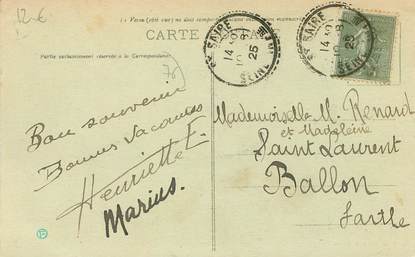 12 €
(1) Verso (côté vue) ne doit
CARTE
Partie exclusivement réservée à la Correspondance.
76
14
25
SEINE
14
25
SEINE
Bon souvenir
Bonnes vacances
Henriette E.
Marius.
Mademoiselle M. Renard
et Madeleine
Saint Laurent
Ballon
Sarthe